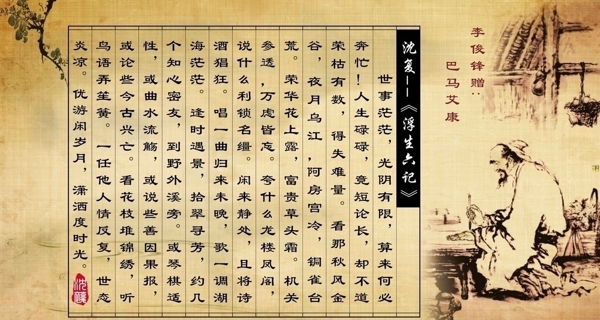 李俊锋赠：
巴马艾康
沈复——《浮生六记》
世事茫茫，光阴有限，算来何必
奔忙！人生碌碌，竞短论长，却不道
荣枯有数，得失难量。看那秋风金
谷，夜月乌江，阿房宫冷，铜雀台
荒。荣华花上露，富贵草头霜。机关
参透，万虑皆忘。夸什么龙楼凤阁，
说什么利锁名缰。闲来静处，且将诗
酒猖狂。唱一曲归来未晚，歌一调湖
海茫茫。逢时遇景，拾翠寻芳，约几
个知心密友，到野外溪旁。或琴棋适
性，或曲水流觞，或说些善因果报，
或论些今古兴亡。看花枝堆锦绣，听
鸟语弄笙簧。一任他人情反复，世态
炎凉。优游闲岁月，潇洒度时光。